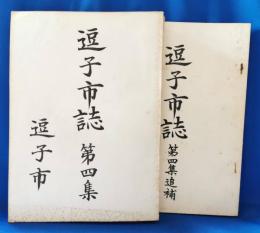 逗子市誌 第四集
逗子市
逗子市誌 第四集追補